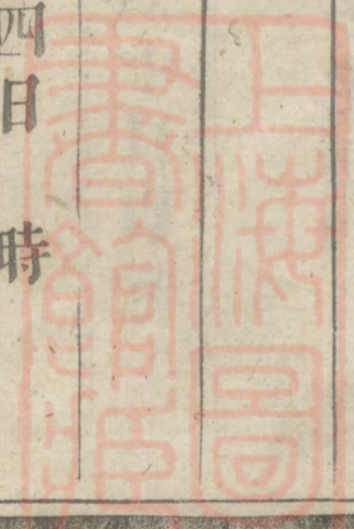 上海圖
書館藏
四日 時